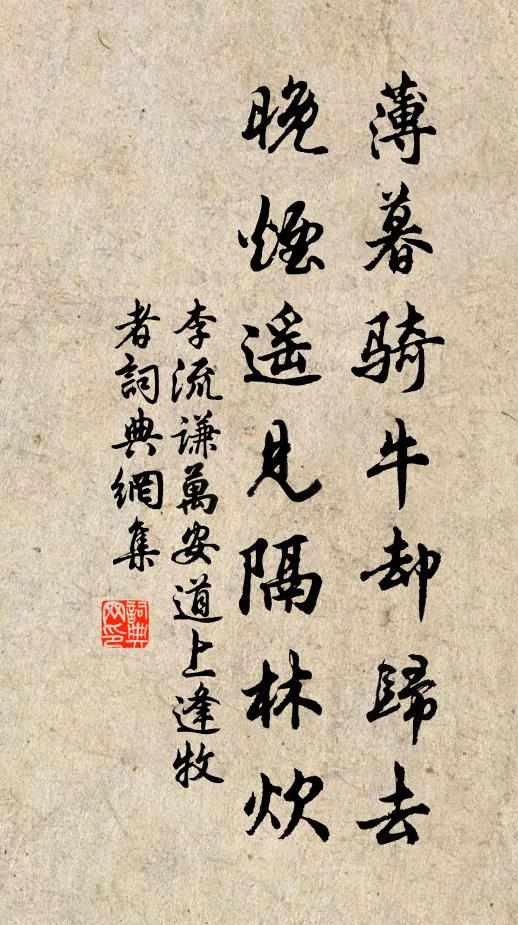 薄暮骑牛却歸去
晚煙遥見隔林炊
李流谦萬安道上逢牧
者詞典網集
詞典
网印